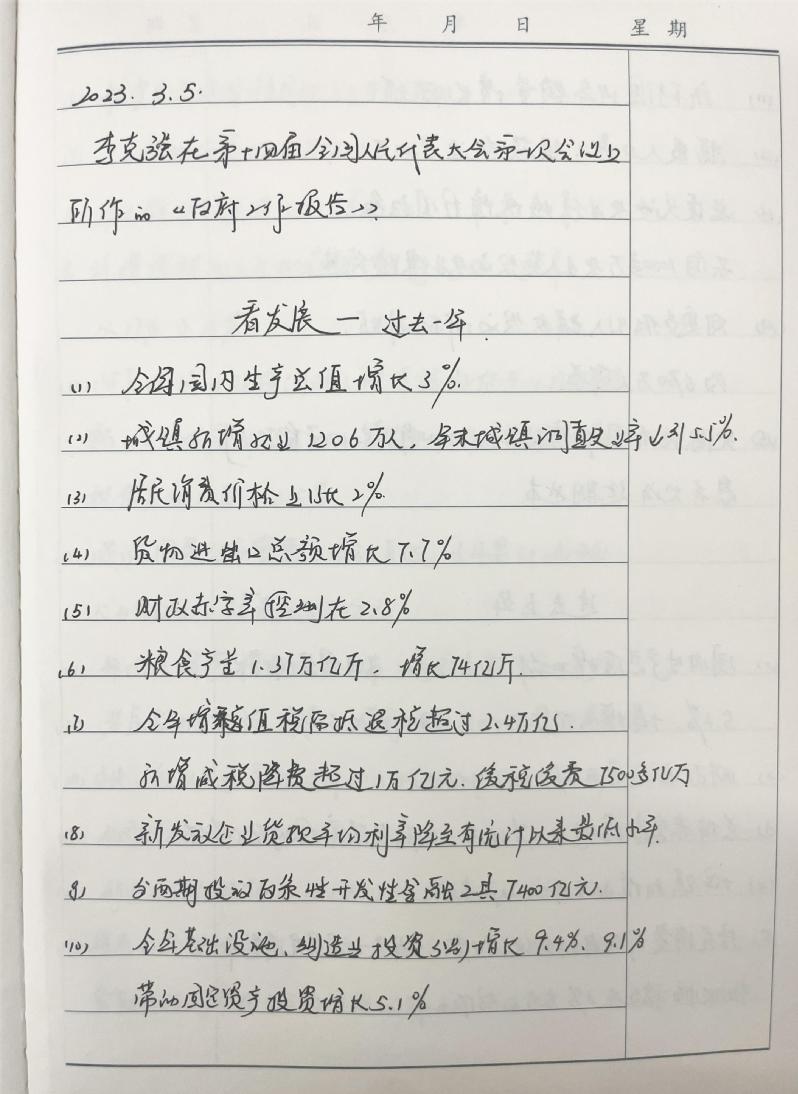 年 月 日 星 期
2023. 3.5.
李克强在第十四届全国人民代表大会第一次会议上
所作的《政府工作报告》.
看发展 — 过去一年
(1) 全年国内生产总值增长3%.
(2) 城镇新增就业1206万人, 年末城镇调查失业率为到5.5%.
(3) 居民消费价格上涨2%
(4) 货物进出口总额增长7.7%
(5) 财政赤字率控制在2.8%
(6) 粮食产量1.37万亿斤, 增长74亿斤.
(7) 全年增值税留抵退税超过2.4万亿.
新增减税降费超过1万亿元. 缓税缓费7500多亿万
(8) 新发放企业贷款平均利率降至有统计以来最低水平.
(9) 分两期投放政策性开发性金融工具7400亿元.
(10) 全年基础设施、制造业投资分别增长9.4%、9.1%
带动固定资产投资增长5.1%